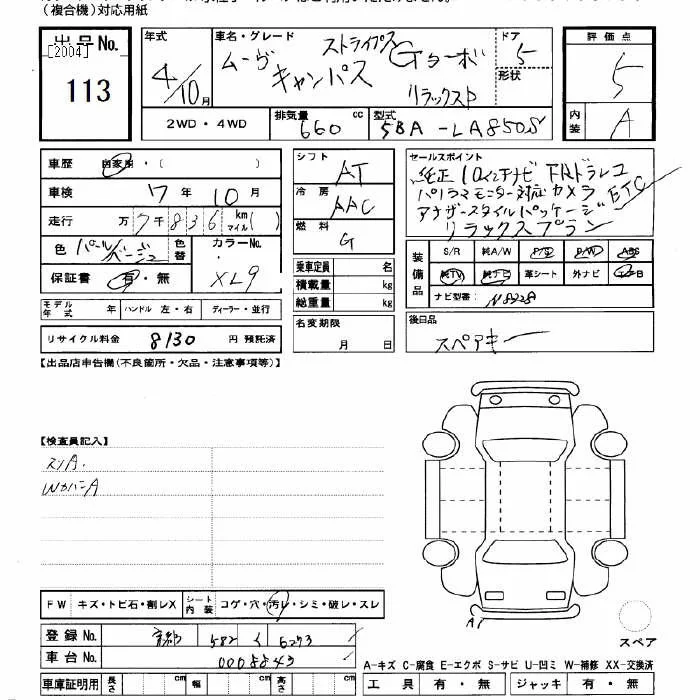 (複合機)対応用紙
出品No.
[2004]
113
年式
4/10月
車名・グレード
ムーヴ キャンバス ストライプス Gターボ リラックスP
ドア
5
形状
2WD・4WD
排気量
660 cc
型式
5BA-LA850S
評価点
5
内装
A
車歴 自家用・( )
車検 7年 10月
走行 万 7千 836 km マイル( )
色 パール/ベージュ
色替
カラーNo.
XL9
保証書 有・無
モデル年式 年 ハンドル 左・右 ディーラー・並行
リサイクル料金 8130 円 預託済
シフト AT
冷房 AAC
燃料 G
乗車定員 名
積載量 kg
総重量 kg
名変期限
月 日
セールスポイント
純正10インチナビ FRドラレコ
パノラマモニター対応カメラ ETC
アナザースタイルパッケージ
リラックスプラン
装備品
S/R 純A/W P/S P/W ABS
純TV 純ナビ 革シート 外ナビ
ナビ型番: N8228
後日品
スペアキー
【出品店申告欄(不良箇所・欠品・注意事項等)】
【検査員記入】
スリA.
WカバーA
FW キズ・トビ石・割レX シート内装 コゲ・穴・汚レ・シミ・破レ・スレ
登録No. 京都 582 く 6273
車台No. 0008843
車庫証明用 長さ cm 幅 cm 高さ cm
A1
スペア
A-キズ C-腐食 E-エクボ S-サビ U-凹ミ W-補修 XX-交換済
工具 有・無 ジャッキ 有・無